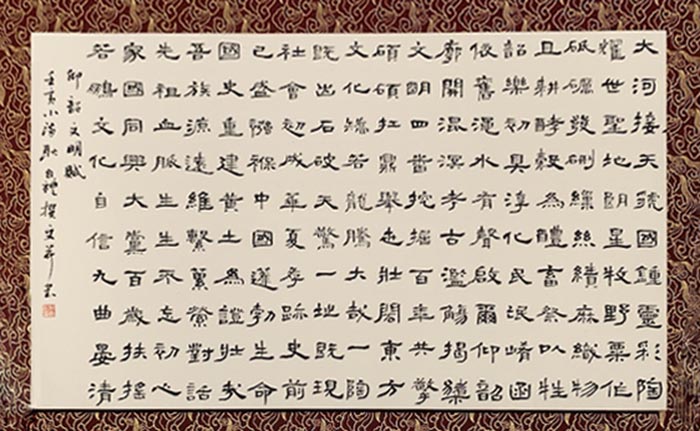 大河接天虢國鍾靈彩陶
耀世聖地朗星牧野粟作
砥礪發硎繅絲績麻織物
且耕酵穀為醴畜祭以牲
韶樂初具淳化民氓崤函
依舊澠水有聲啟爾仰韶
廓開混溟考古濫觴揭櫫
文明四番挖掘百年共擎
碩碩扛鼎舉也壯闊東方
文化矯若龍騰大哉一陶
既出石破天驚一地既現
社會初成華夏季跡史前
已盛襁褓中國遂勃生命
國史重建黃土為證壯哉
吾族源遠維繫縈對話
先祖血脈生生不忘初心
家國同興大黨百歲扶搖
若鵬文化自信九曲晏清
仰韶文明賦
壬寅小滿耿自禮撰文并書